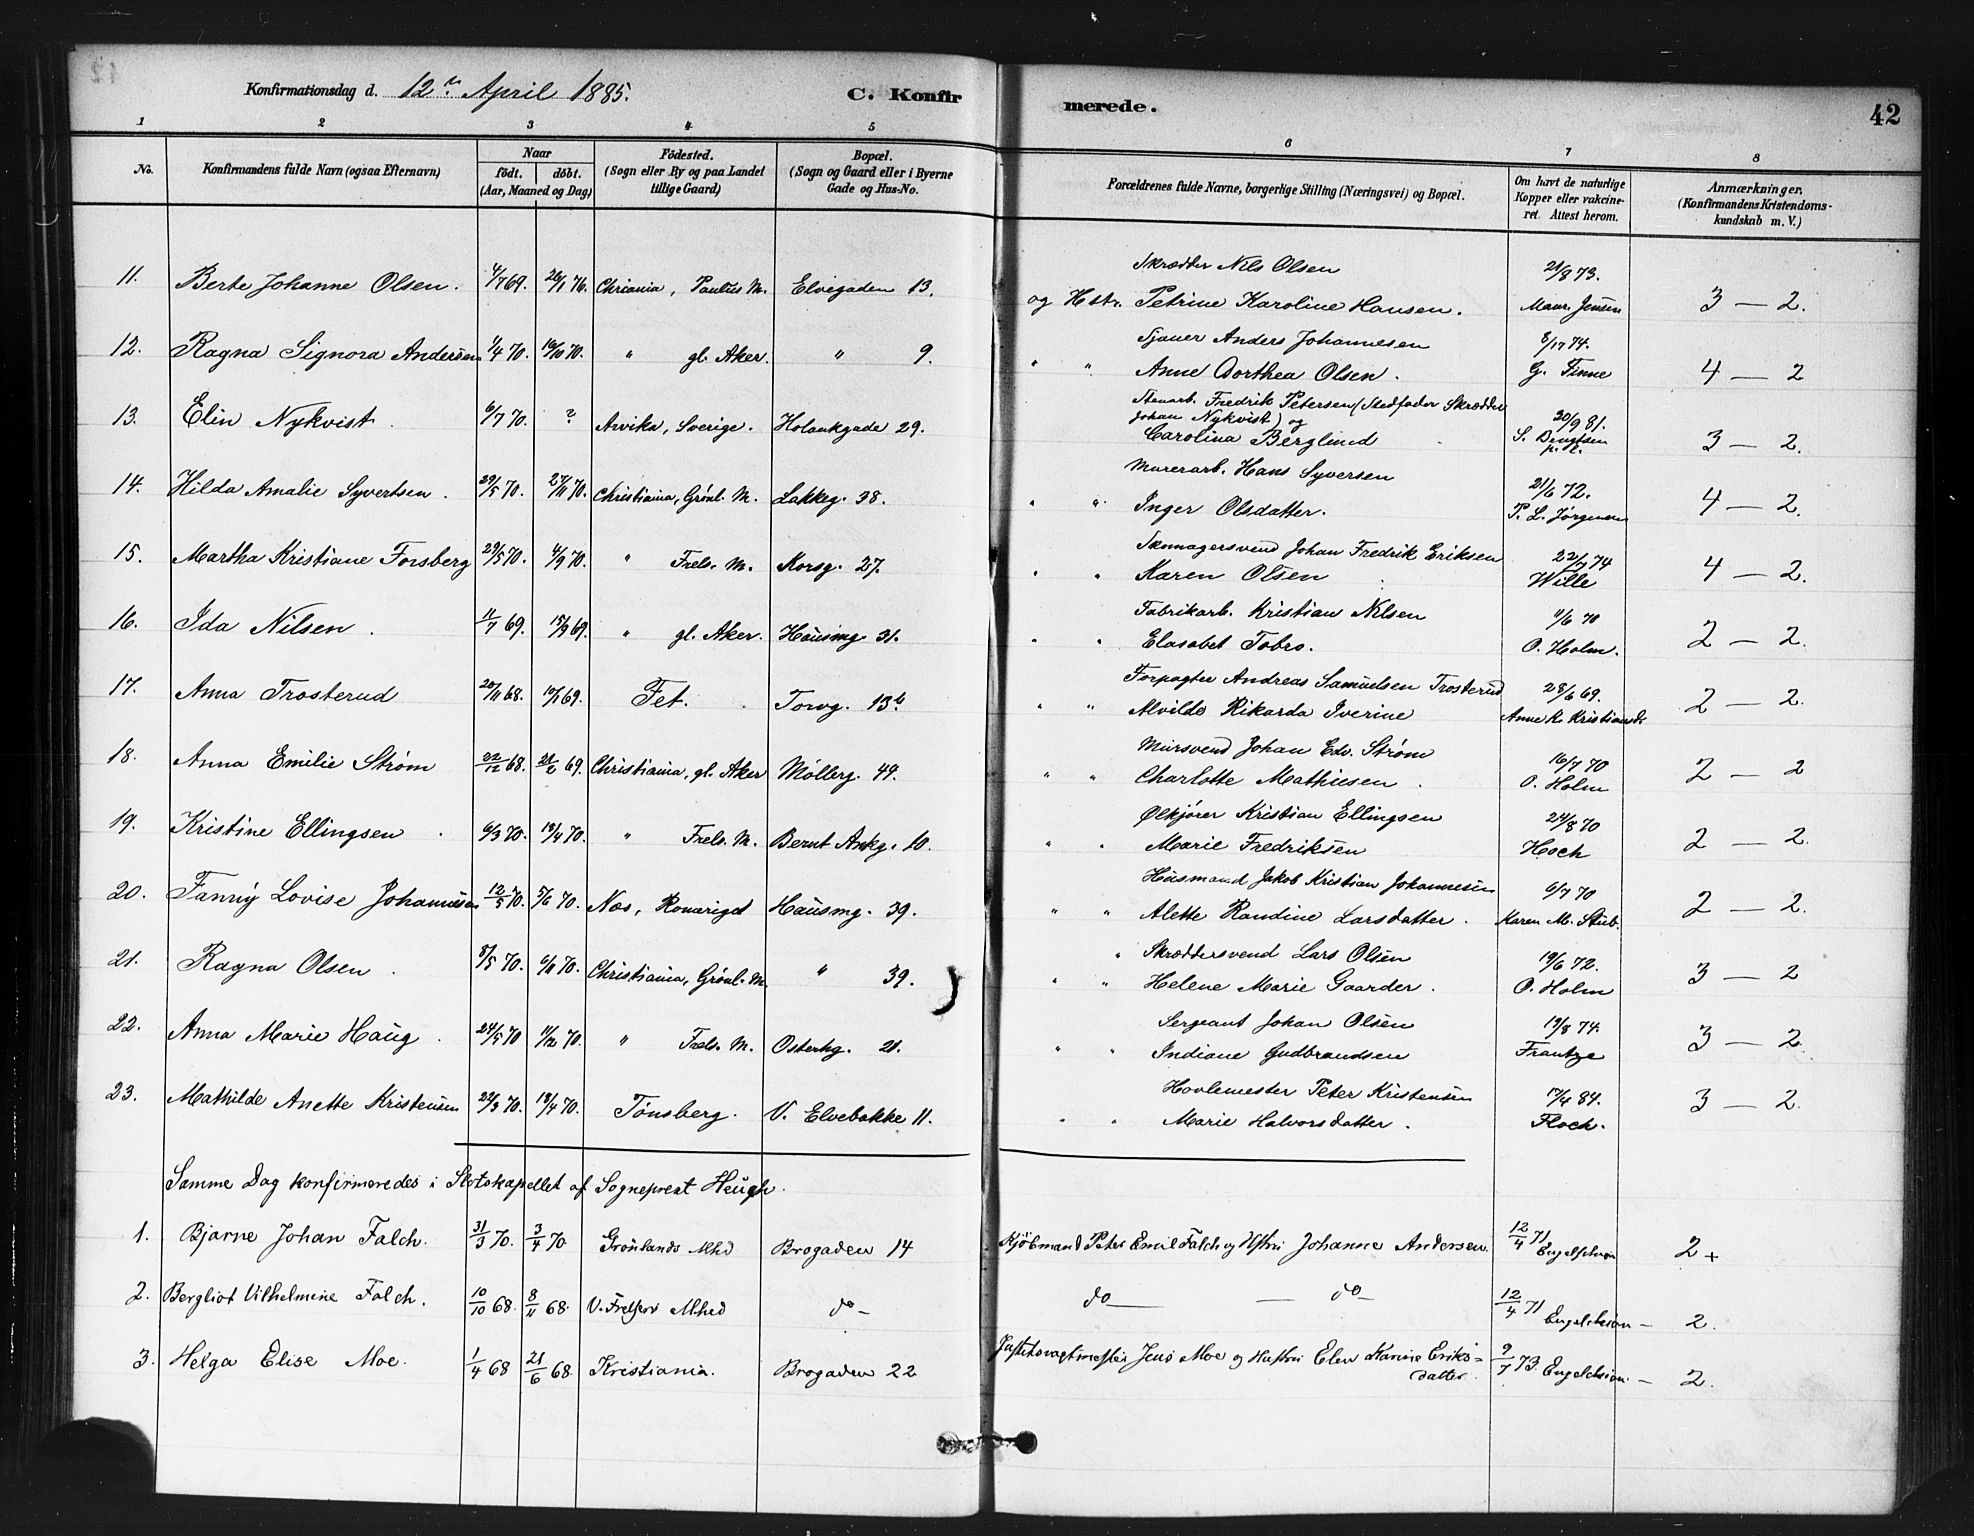 Konfirmationsdag d. 12te April 1885. C. Konfirmerede. 42
1 2 3 4 5 6 7 8
No. Konfirmandens fulde Navn (ogsaa Efternavn) Naar födt. döbt. (Aar, Maaned og Dag) Födested. (Sogn eller By og paa Landet tillige Gaard) Bopæl. (Sogn og Gaard eller i Byerne Gade og Hus-No. Forældrenes fulde Navne, borgerlige Stilling (Næringsvei) og Bopæl. Om havt de naturlige Kopper eller vakcineret. Attest herom. Anmærkninger. (Konfirmandens Kristendomskundskab m. V.)
11. Berte Johanne Olsen. 4/7 69. 26/1 76. Chriania, Paulus M. Elvegaden 13. Skrædder Nils Olsen og Hstr. Petrine Karoline Hansen. 21/8 73. Maur. Jensen 3 — 2.
12. Ragna Signora Andersen 1/4 70. 19/10 70. " gl. Aker. " 9. Sjauer Anders Johannesen " " Anne Dorthea Olsen. 74. G. Finne 4 — 2
13. Elin Nykvist. 6/7 70. ? Arvika, Sverige. Holankgade 29. Stenarb. Fredrik Petersen (Stedfader Skrædder Johan Nykvist) og Carolina Berglund 30/9 81. S. 3 — 2.
14. Hilda Amalie Syvertsen. 29/5 70. 27/11 70. Christiania, Grønl. M. Lakkeg. 38. Murerarb. Hans Syversen " " Inger Olsdatter. 21/6 72. P. L. Jørgensen 4 — 2.
15. Martha Kristiane Forsberg 29/5 70. 4/9 70. " Frels. M. Korsg. 27. Skomagersvend Johan Fredrik Eriksen " " Karen Olsen 74 Wille 4 — 2.
16. Ida Nilsen. 11/7 69. 19/9 69. " gl. Aker. Hausmg. 31. Fabrikarb. Kristian Nilsen " " Elasabet Tobro. 11/6 70 O. Holm. 2 — 2.
17. Anna Trosterud 20/11 68. 69. Fet. Torvg. 13b Forpagter Andreas Samuelsen Trosterud " " Alvilde Rikarda Iverine 28/6 69. Anne K. Kristiansd. 2 — 2.
18. Anna Emilie Strøm 22/12 68. 21/2 69. Christiania, gl. Aker Møllerg. 49. Mursvend Johan Edv. Strøm " " Charlotte Mathiesen. 16/7 70 O. Holm 2 — 2
19. Kristine Ellingsen. 6/3 70. 18/4 70. " Frels. M. Bernt Ankg. 10. Ølkjører Kristian Ellingsen " " Marie Fredriksen 24/8 70 Hoch 2 — 2.
20. Fanny Lovise Johannesen 12/5 70. 5/6 70. Næs, Romeriget Hausmg. 39. Husmand Jakob Kristian Johannesen " " Alette Randine Larsdatter. 6/7 70 Karen M. Stub. 2 — 2.
21. Ragna Olsen. 8/5 70. 6/11 70. Christiania, Grønl. M. " 39. Skræddersvend Lars Olsen " " Helene Marie Gaarder. 19/6 72. O. Holm 3 — 2
22. Anna Marie Haug. 24/5 70 11/12 70. " Frels. M. Osterhg. 21. Sergeant Johan Olsen " " Indiane Gudbrandsen 19/8 74. Frantze 3 — 2.
23. Mathilde Anette Kristensen 22/3 70. 18/4 70. Tønsberg. V. Elvebakke 11. Hovlemester Peter Kristensen " " Marie Halvorsdatter. 17/4 84. Floch. 3 — 2.
Samme Dag konfirmeredes i Slotskapellet af Sogneprest Heugh.
1. Bjarne Johan Falch. 31/3 70. 3/4 70 Grønlands Mhd Brogaden 14 Kjøbmand Peter Emil Falch og Hstri Johanne Andersen. 12/4 71 Engelschiøn 2 +
2. Bergliot Vilhelmine Falch. 10/10 68. 8/11 68. V. Frelsers Mhed do — do — do — 12/4 71 Engelschiøn — 2.
3. Helga Elise Moe. 1/4 68 21/6 68. Kristiania. Brogaden 22 Justitsvagtmester Jens Moe og Hustri Elen Karine Eriksdatter. 9/7 73. Engelschiøn. — 2.